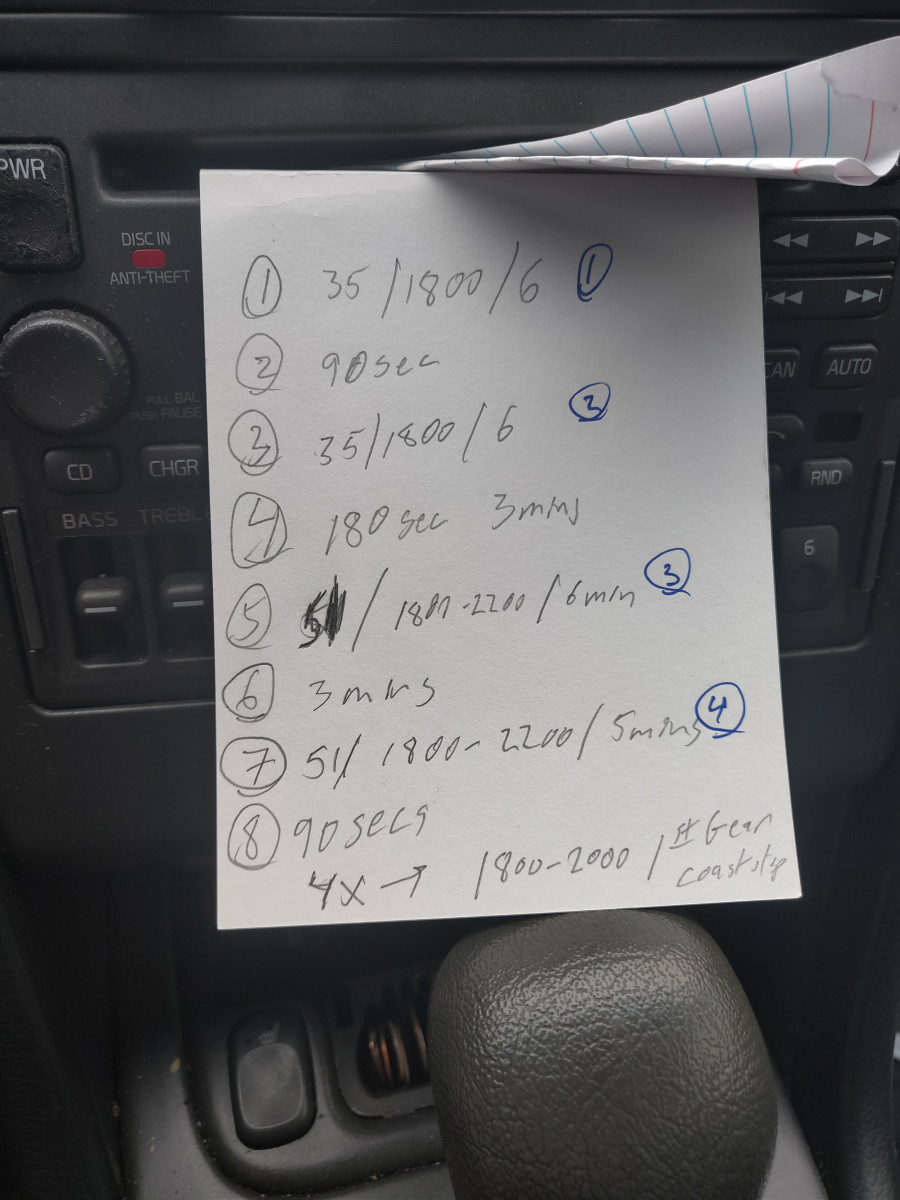 PWR
DISC IN
ANTI-THEFT
PULL BAL
PUSH PAUSE
CD
CHGR
BASS TREBL
AUTO
RND
6
① 35/1800/6 ①
② 90sec
③ 35/1800/6 ③
④ 180sec 3mins
⑤ / 1800-2200/6min ③
⑥ 3mins
⑦ 51/ 1800-2200/5mins ④
⑧ 90secs
4X → 1800-2000/1st Gear
coast stop